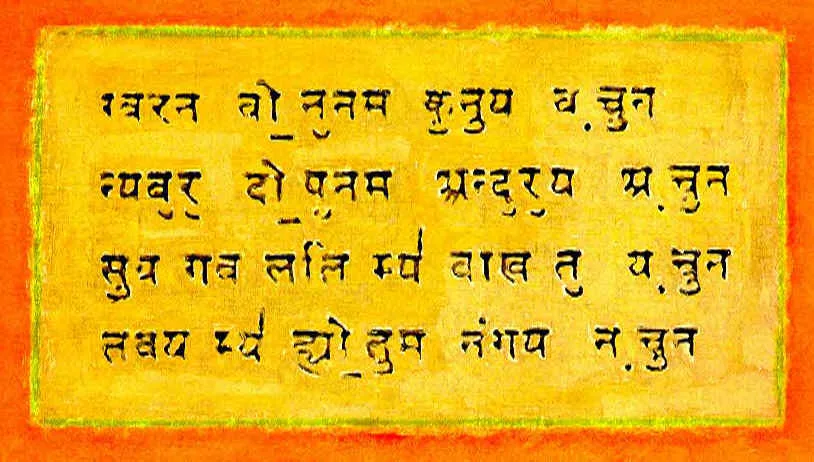 ग्वरन वो॒नुनम कुनुय व.चुन
न्यबरु दो॒पुनम अन्दुरुय अ.चुन
सुय गव ललि म्य॑ वाख तु व.चुन
तवय म्य॑ ह्यो॒तुम नंगय न.चुन